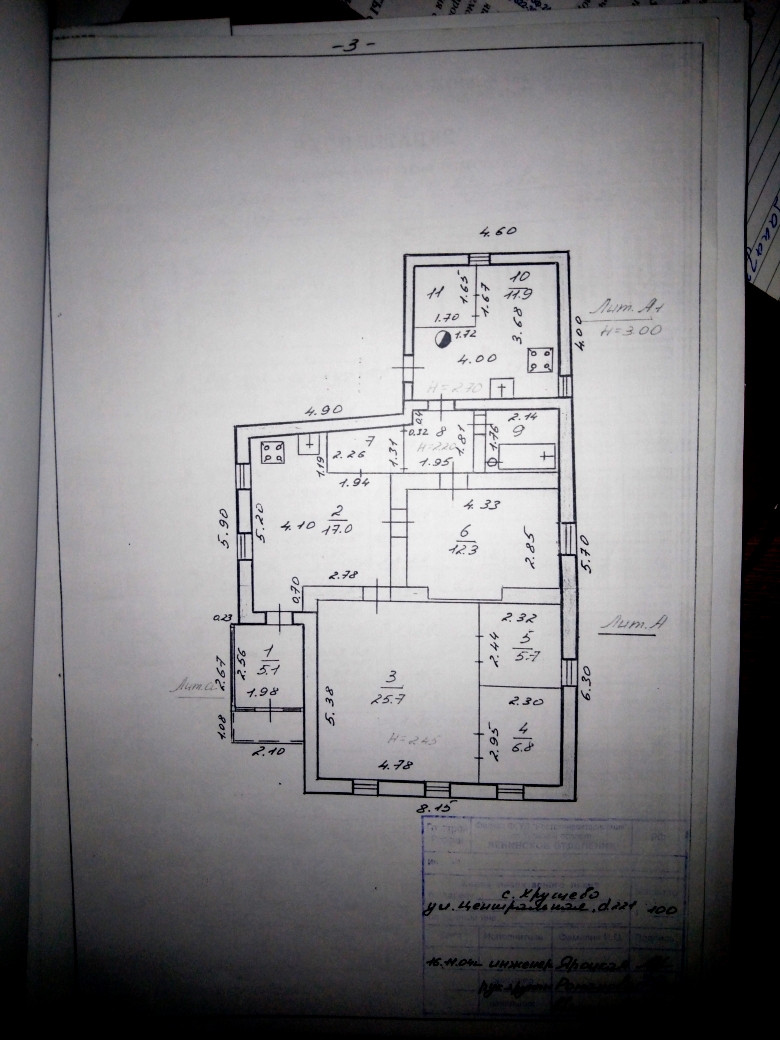 -3-
4.60
11
1.65
1.67
10
11.9
1.70
1.72
3.68
4.00
4.00
Лит. А1
H=3.00
H=2.70
4.90
0.4
0.32
8
2.14
9
1.76
7
2.26
1.31
H=2.20
1.81
1.19
1.94
1.95
5.90
5.20
4.10
2
17.0
4.33
6
12.3
2.85
5.70
2.78
0.70
0.23
2.67
2.56
1
5.1
1.98
2.32
2.44
5
5.7
Лит. А
6.30
Лит. а
3
25.7
5.38
2.30
2.95
4
6.8
1.08
2.10
H=2.45
4.78
8.15
с. Хрущево
ул. Центральная, д.221 100
16.11.04г инженер Яроцкая